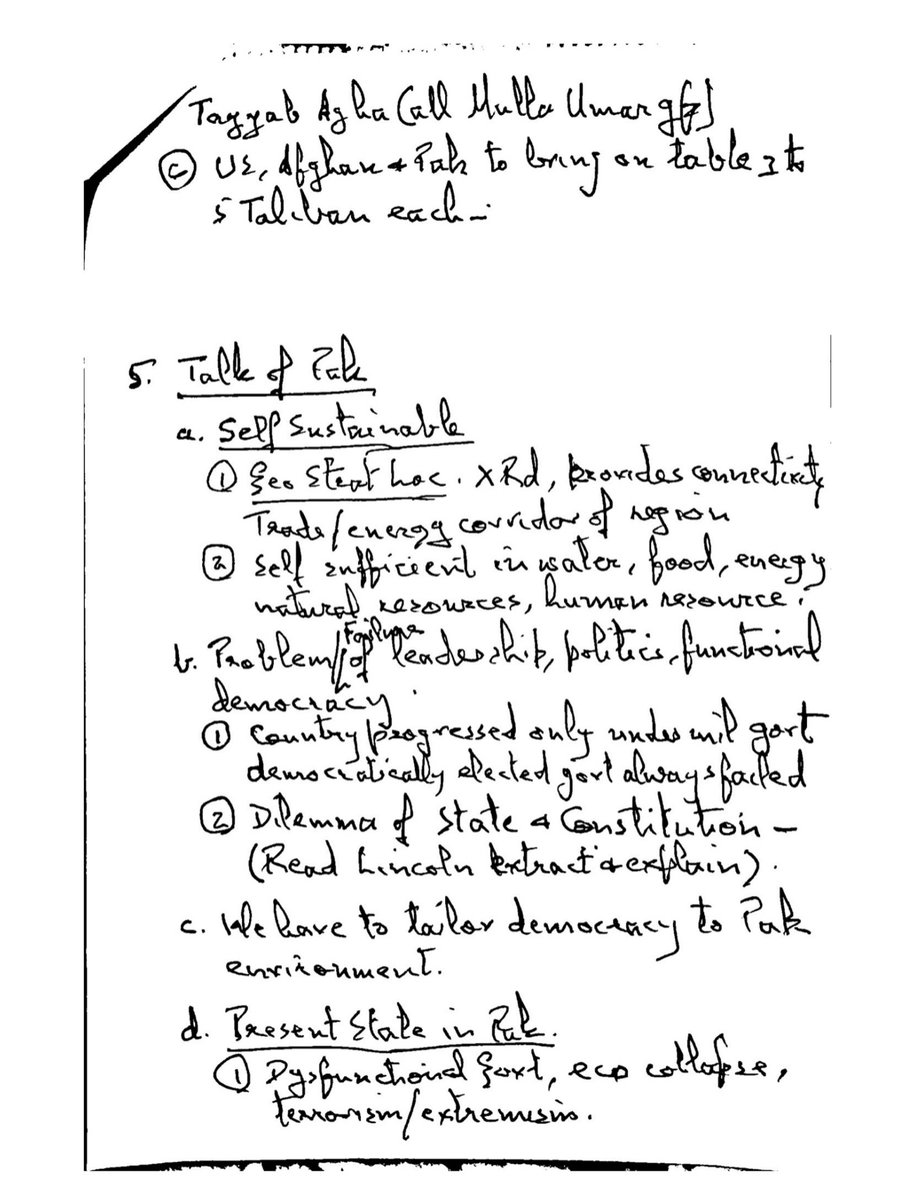 Tayyab Agha Call Mulla Umar
Ⓒ US, Afghan & Pak to bring on table 3 to
5 Taliban each –
5. Talk of Pak
a. Self Sustainable
① Geo Strat Loc. X Rd, provides connectivity
Trade/energy corridor of region
② Self sufficient in water, food, energy
natural resources, human resource.
Failure
b. Problem/ of leadership, politics, functional
democracy.
① Country progressed only under mil govt
democratically elected govt always failed
② Dilemma of State & Constitution –
(Read Lincoln extract & explain).
c. We have to tailor democracy to Pak
environment.
d. Present State in Pak.
① Dysfunctional Govt, eco collapse,
terrorism/extremism.